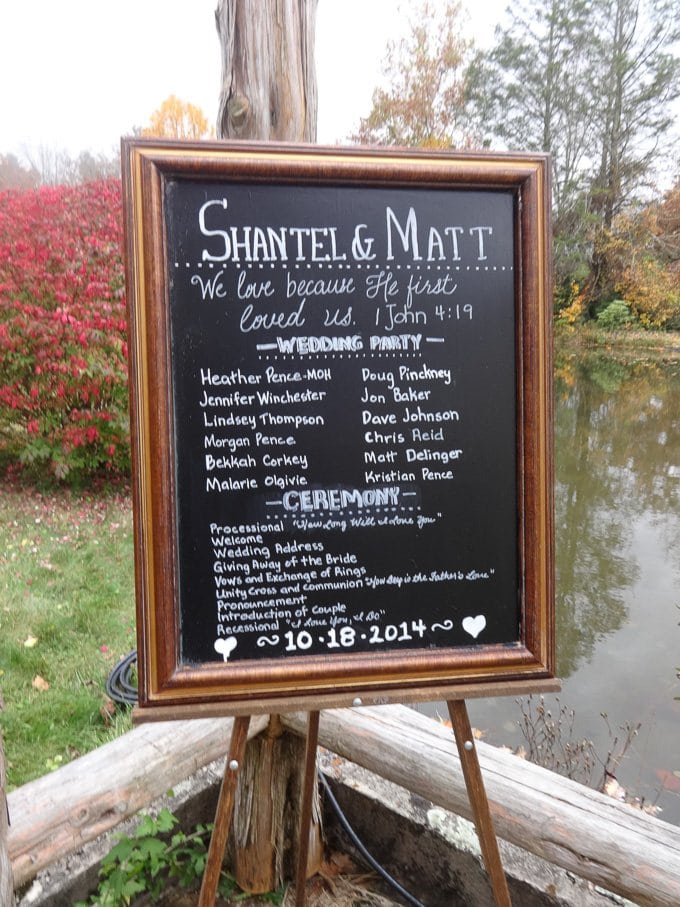 SHANTEL & MATT
We love because He first
loved us. 1 John 4:19
WEDDING PARTY
Heather Pence-MOH Doug Pinckney
Jennifer Winchester Jon Baker
Lindsey Thompson Dave Johnson
Morgan Pence Chris Reid
Bekkah Corkey Matt Delinger
Malarie Olgivie Kristian Pence
-CEREMONY-
Processional "How Long Will I Love You"
Welcome
Wedding Address
Giving Away of the Bride
Vows and Exchange of Rings
Unity Cross and Communion "How Deep is the Father's Love"
Pronouncement
Introduction of Couple
Recessional "I Love You, I Do"
~10·18·2014~